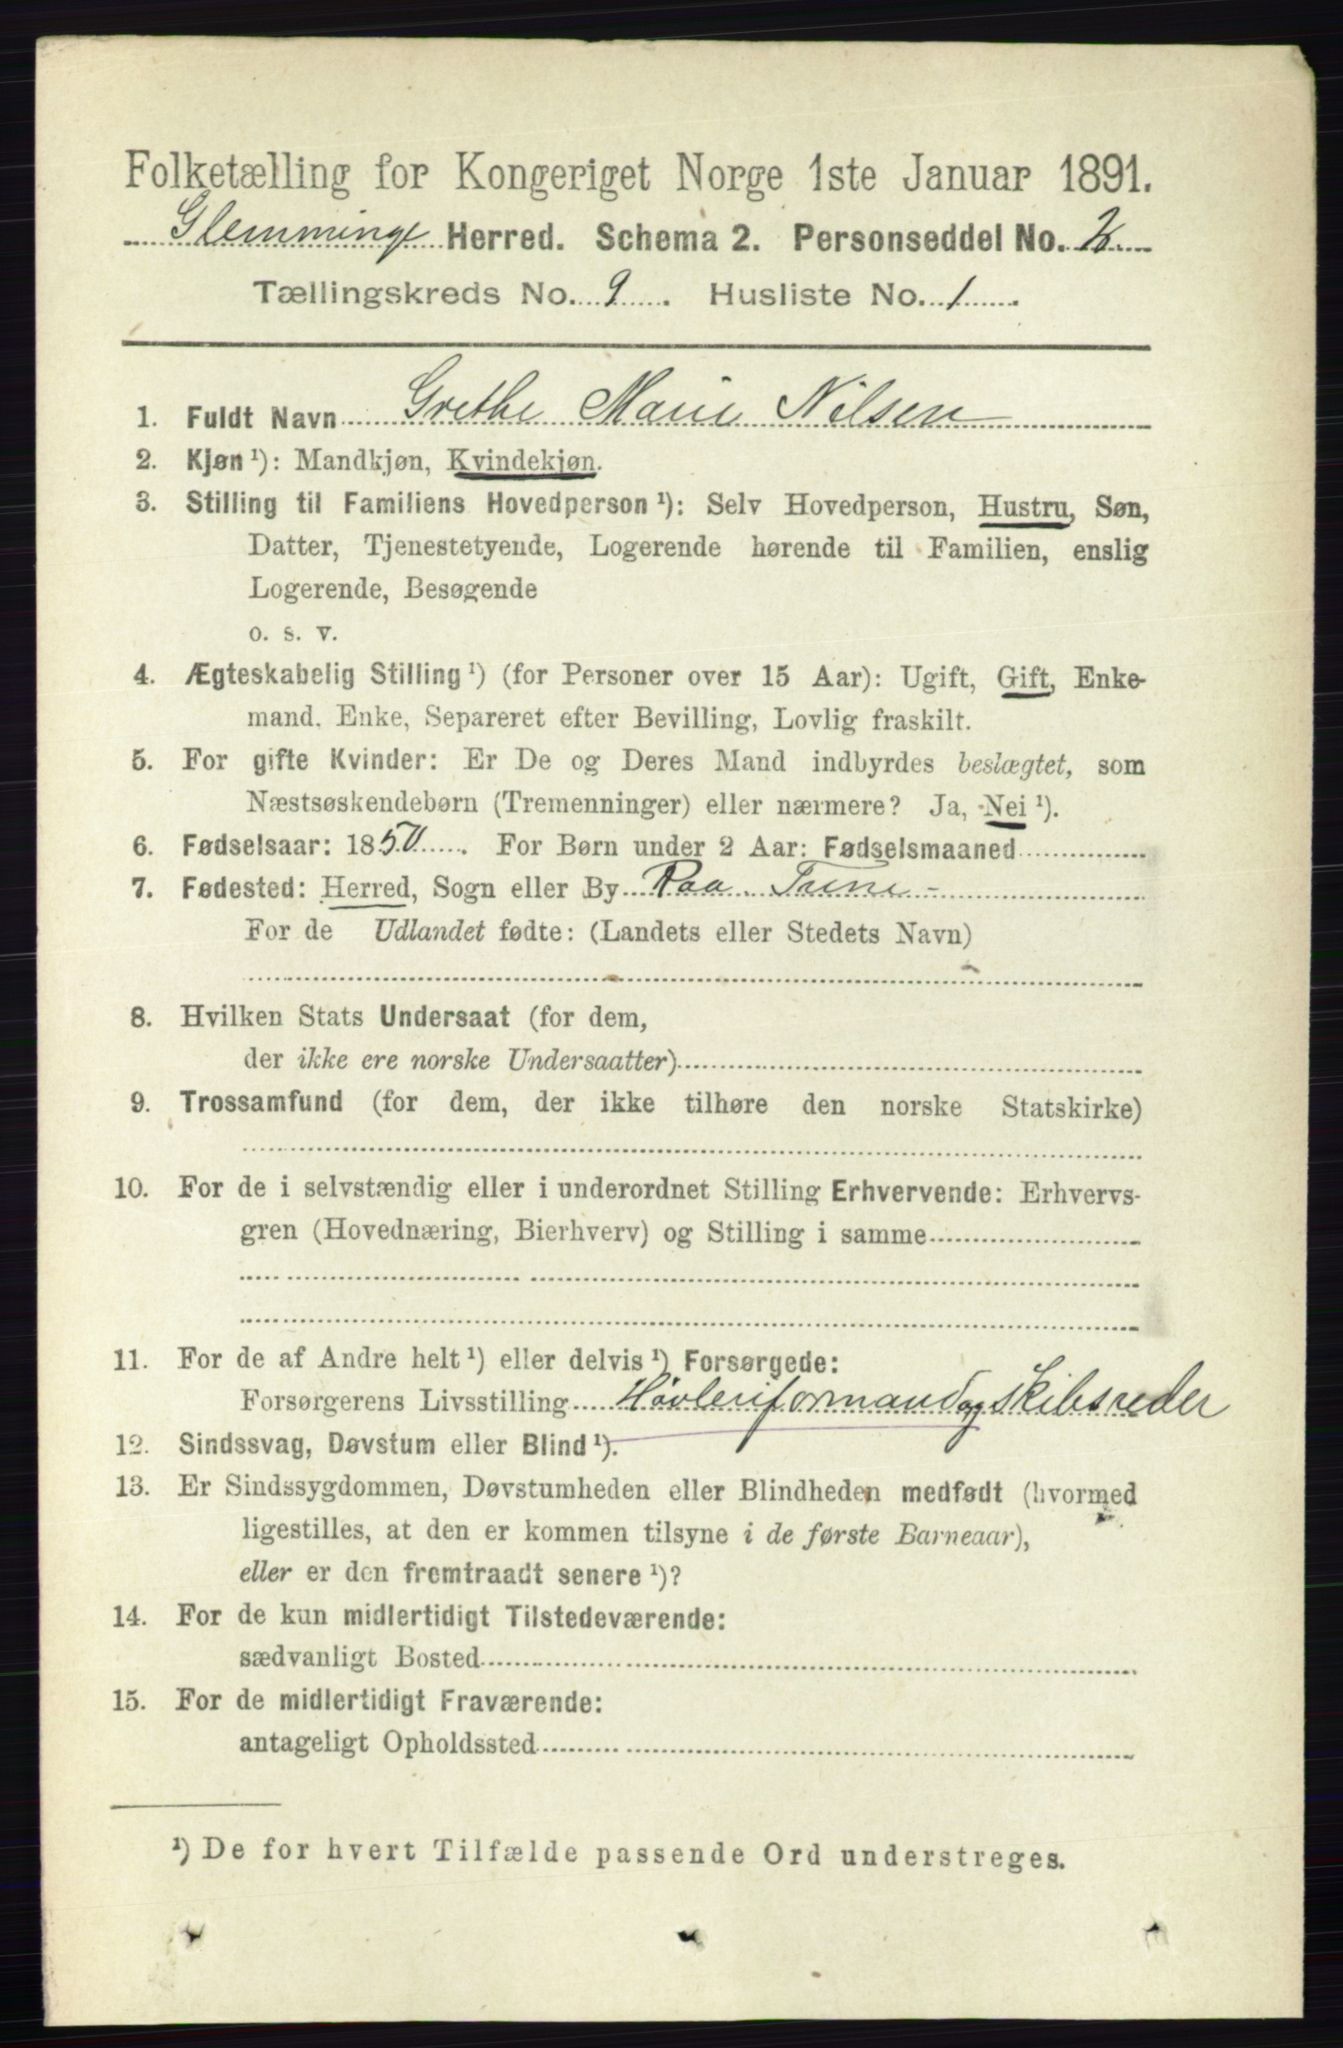 Folketælling for Kongeriget Norge 1ste Januar 1891.
Glemminge Herred. Schema 2. Personseddel No. 2
Tællingskreds No. 9. Husliste No. 1.
1. Fuldt Navn Grethe Marie Nilsen
2. Kjøn ¹): Mandkjøn, Kvindekjøn.
3. Stilling til Familiens Hovedperson ¹): Selv Hovedperson, Hustru, Søn,
Datter, Tjenestetyende, Logerende hørende til Familien, enslig
Logerende, Besøgende
o. s. v.
4. Ægteskabelig Stilling ¹) (for Personer over 15 Aar): Ugift, Gift, Enke-
mand, Enke, Separeret efter Bevilling, Lovlig fraskilt.
5. For gifte Kvinder: Er De og Deres Mand indbyrdes beslægtet, som
Næstsøskendebørn (Tremenninger) eller nærmere? Ja, Nei ¹).
6. Fødselsaar: 1850. For Børn under 2 Aar: Fødselsmaaned
7. Fødested: Herred, Sogn eller By Raa
For de Udlandet fødte: (Landets eller Stedets Navn)
8. Hvilken Stats Undersaat (for dem,
der ikke ere norske Undersaatter)
9. Trossamfund (for dem, der ikke tilhøre den norske Statskirke)
10. For de i selvstændig eller i underordnet Stilling Erhvervende: Erhvervs-
gren (Hovednæring, Bierhverv) og Stilling i samme
11. For de af Andre helt ¹) eller delvis ¹) Forsørgede:
Forsørgerens Livsstilling Høvleriformand og skibsreder
12. Sindssvag, Døvstum eller Blind ¹).
13. Er Sindssygdommen, Døvstumheden eller Blindheden medfødt (hvormed
ligestilles, at den er kommen tilsyne i de første Barneaar),
eller er den fremtraadt senere ¹)?
14. For de kun midlertidigt Tilstedeværende:
sædvanligt Bosted
15. For de midlertidigt Fraværende:
antageligt Opholdssted
¹) De for hvert Tilfælde passende Ord understreges.